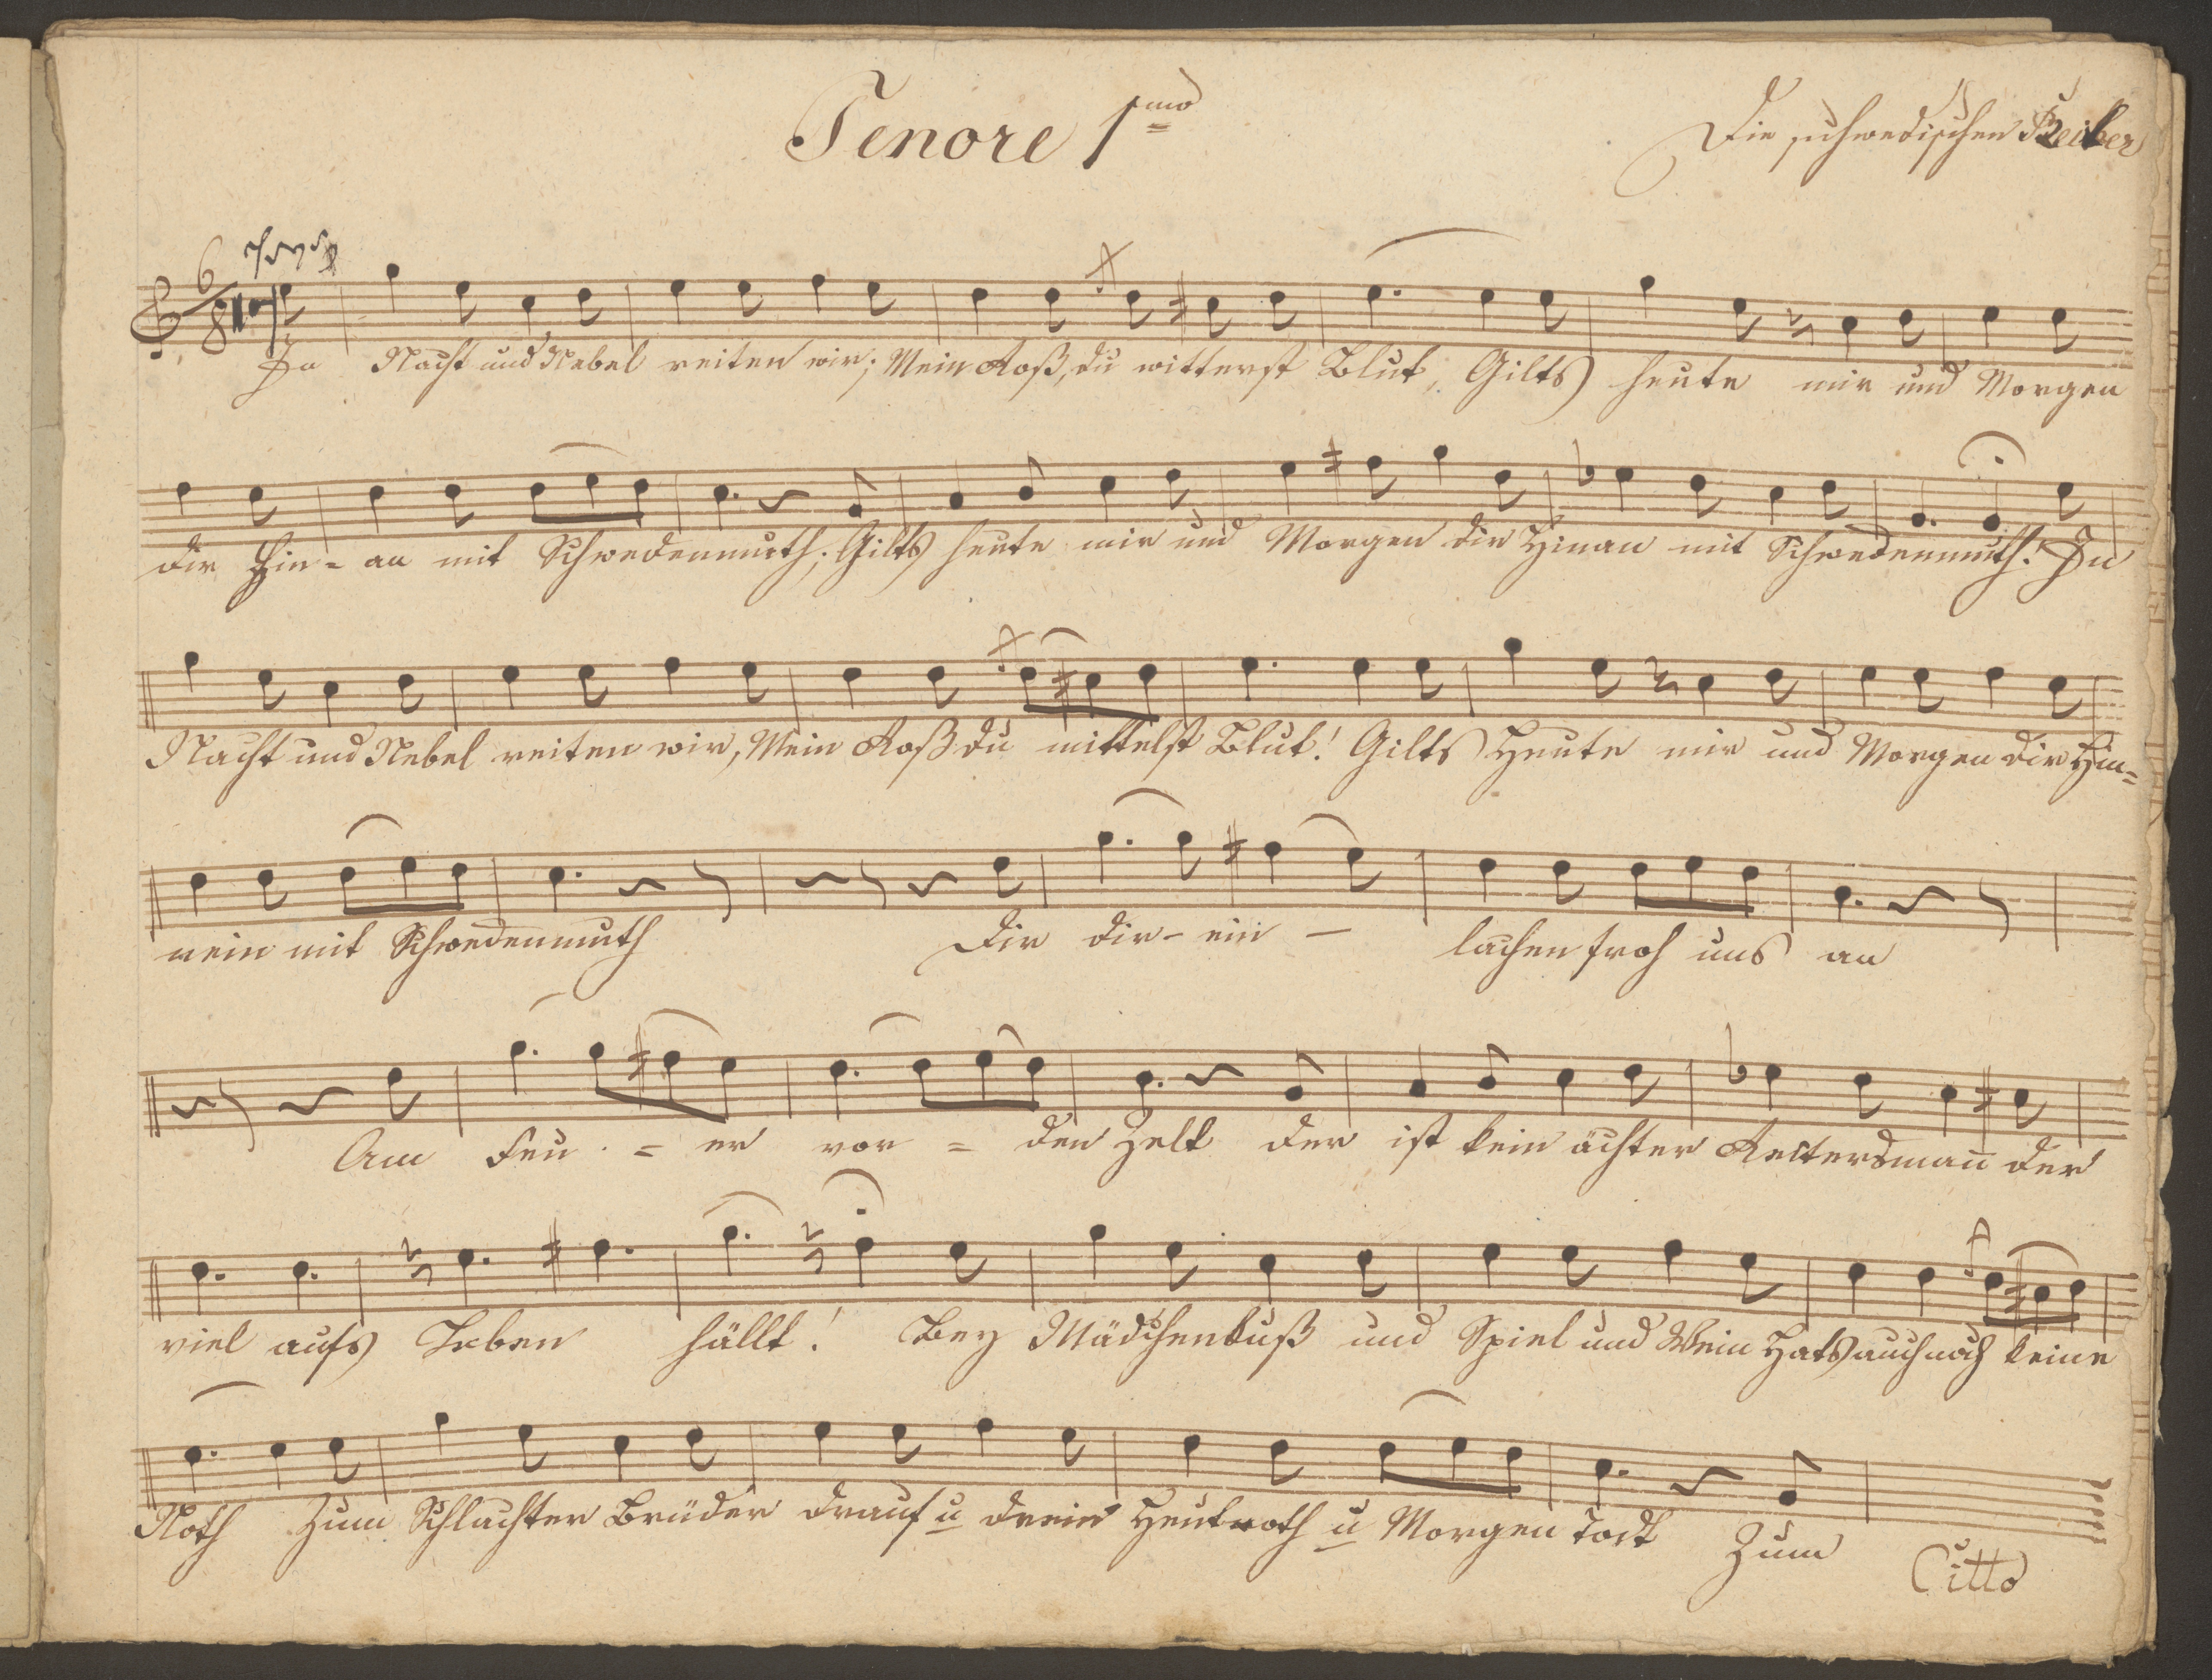 Tenore 1mo
Die schwedischen Reiter
6/8
In Nacht und Nebel reiten wir; Mein Roß, du witterst Blut, Gilts heute mir und Morgen
dir Hin- an mit Schwedenmuth; Gilts heute mir und Morgen dir Hinan mit Schwedenmuth! In
Nacht und Nebel reiten wir, Mein Roß du mittelst Blut! Gilts Heute mir und Morgen dir Hin=
nein mit Schwedenmuth Dir dir- ein - lachen froh uns an
Am Feu = er vor = den Zelt der ist kein ächter Reitersman̄ der
viel aufs Leben hällt! Bey Mädchenkuß und Spiel und Wein Hats auch noch keine
Noth Zum Schlachten Brüder drauf u drein Heut roth u Morgen todt Zum
Citto